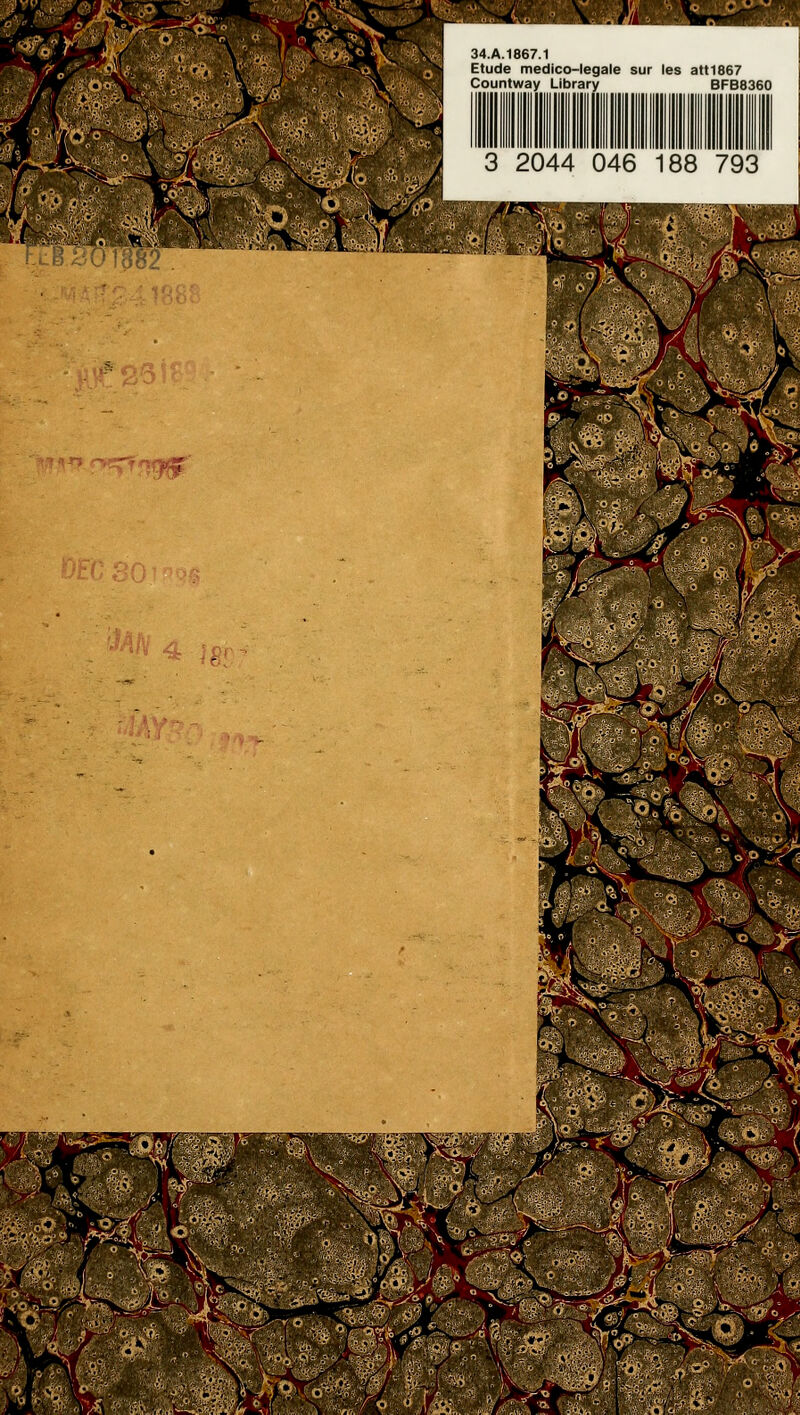 34.A.1867.1
Etude medico-legale sur les att1867
Countway Library BFB8360
3 2044 046 188 793
FEB 20 1882
MAR 24 1888
26 189
MAR 25
DEC 30 1896
JAN 4 1897
MAY 30